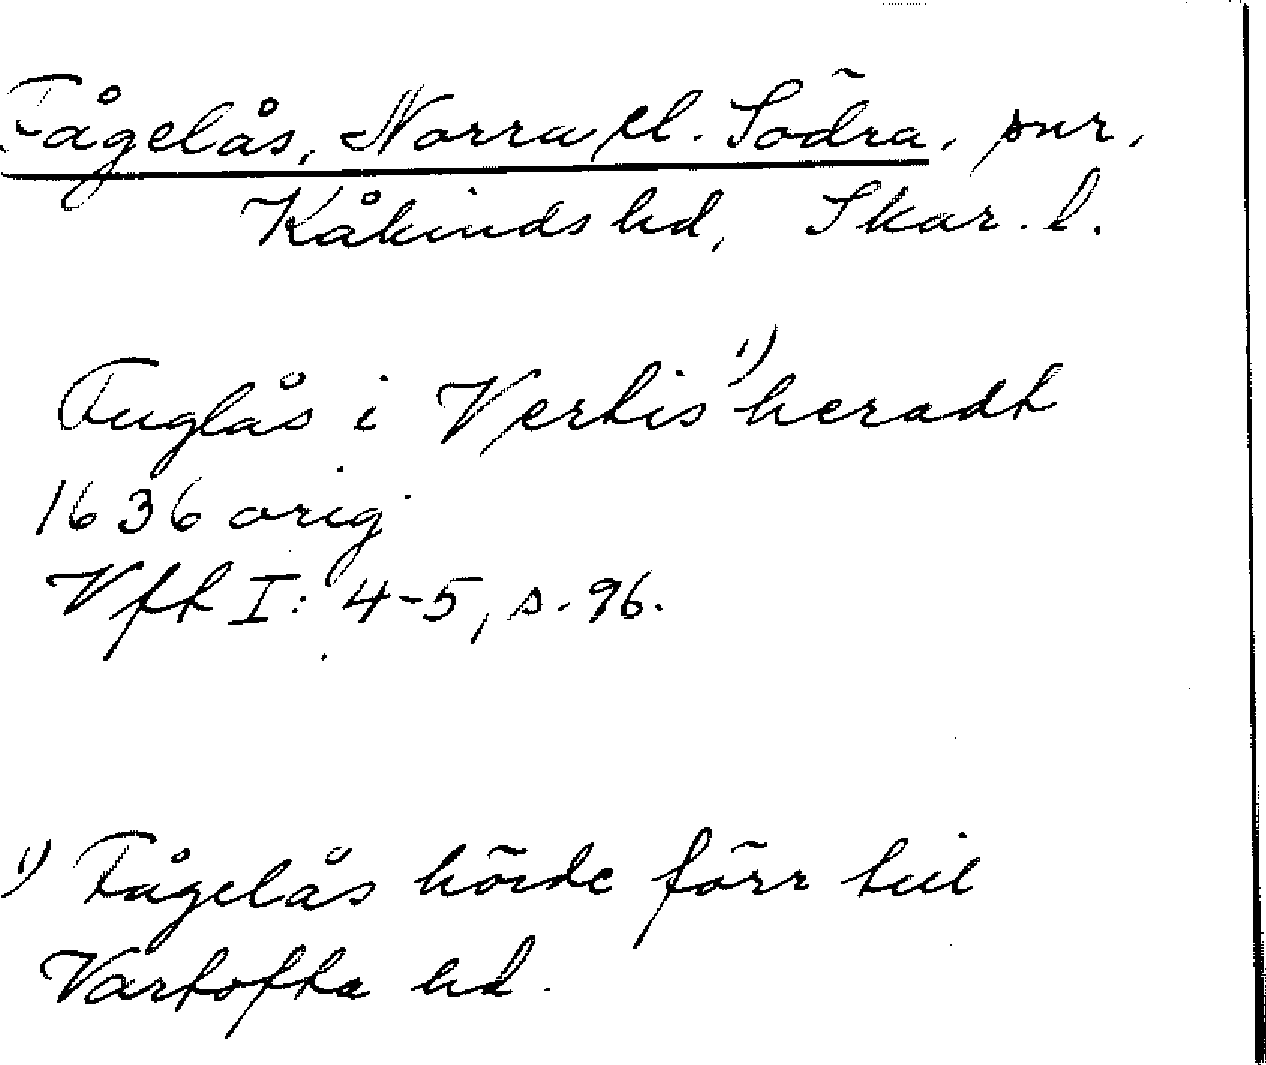 Fågelås, Norra el. Södra, snr,
Kåkinds hd, Skar. l.
Fuglås i Vertis¹⁾ heradt
1636 orig
VFT I: 4-5, s. 96.
¹⁾ Fågelås hörde förr till
Vartofta hd.